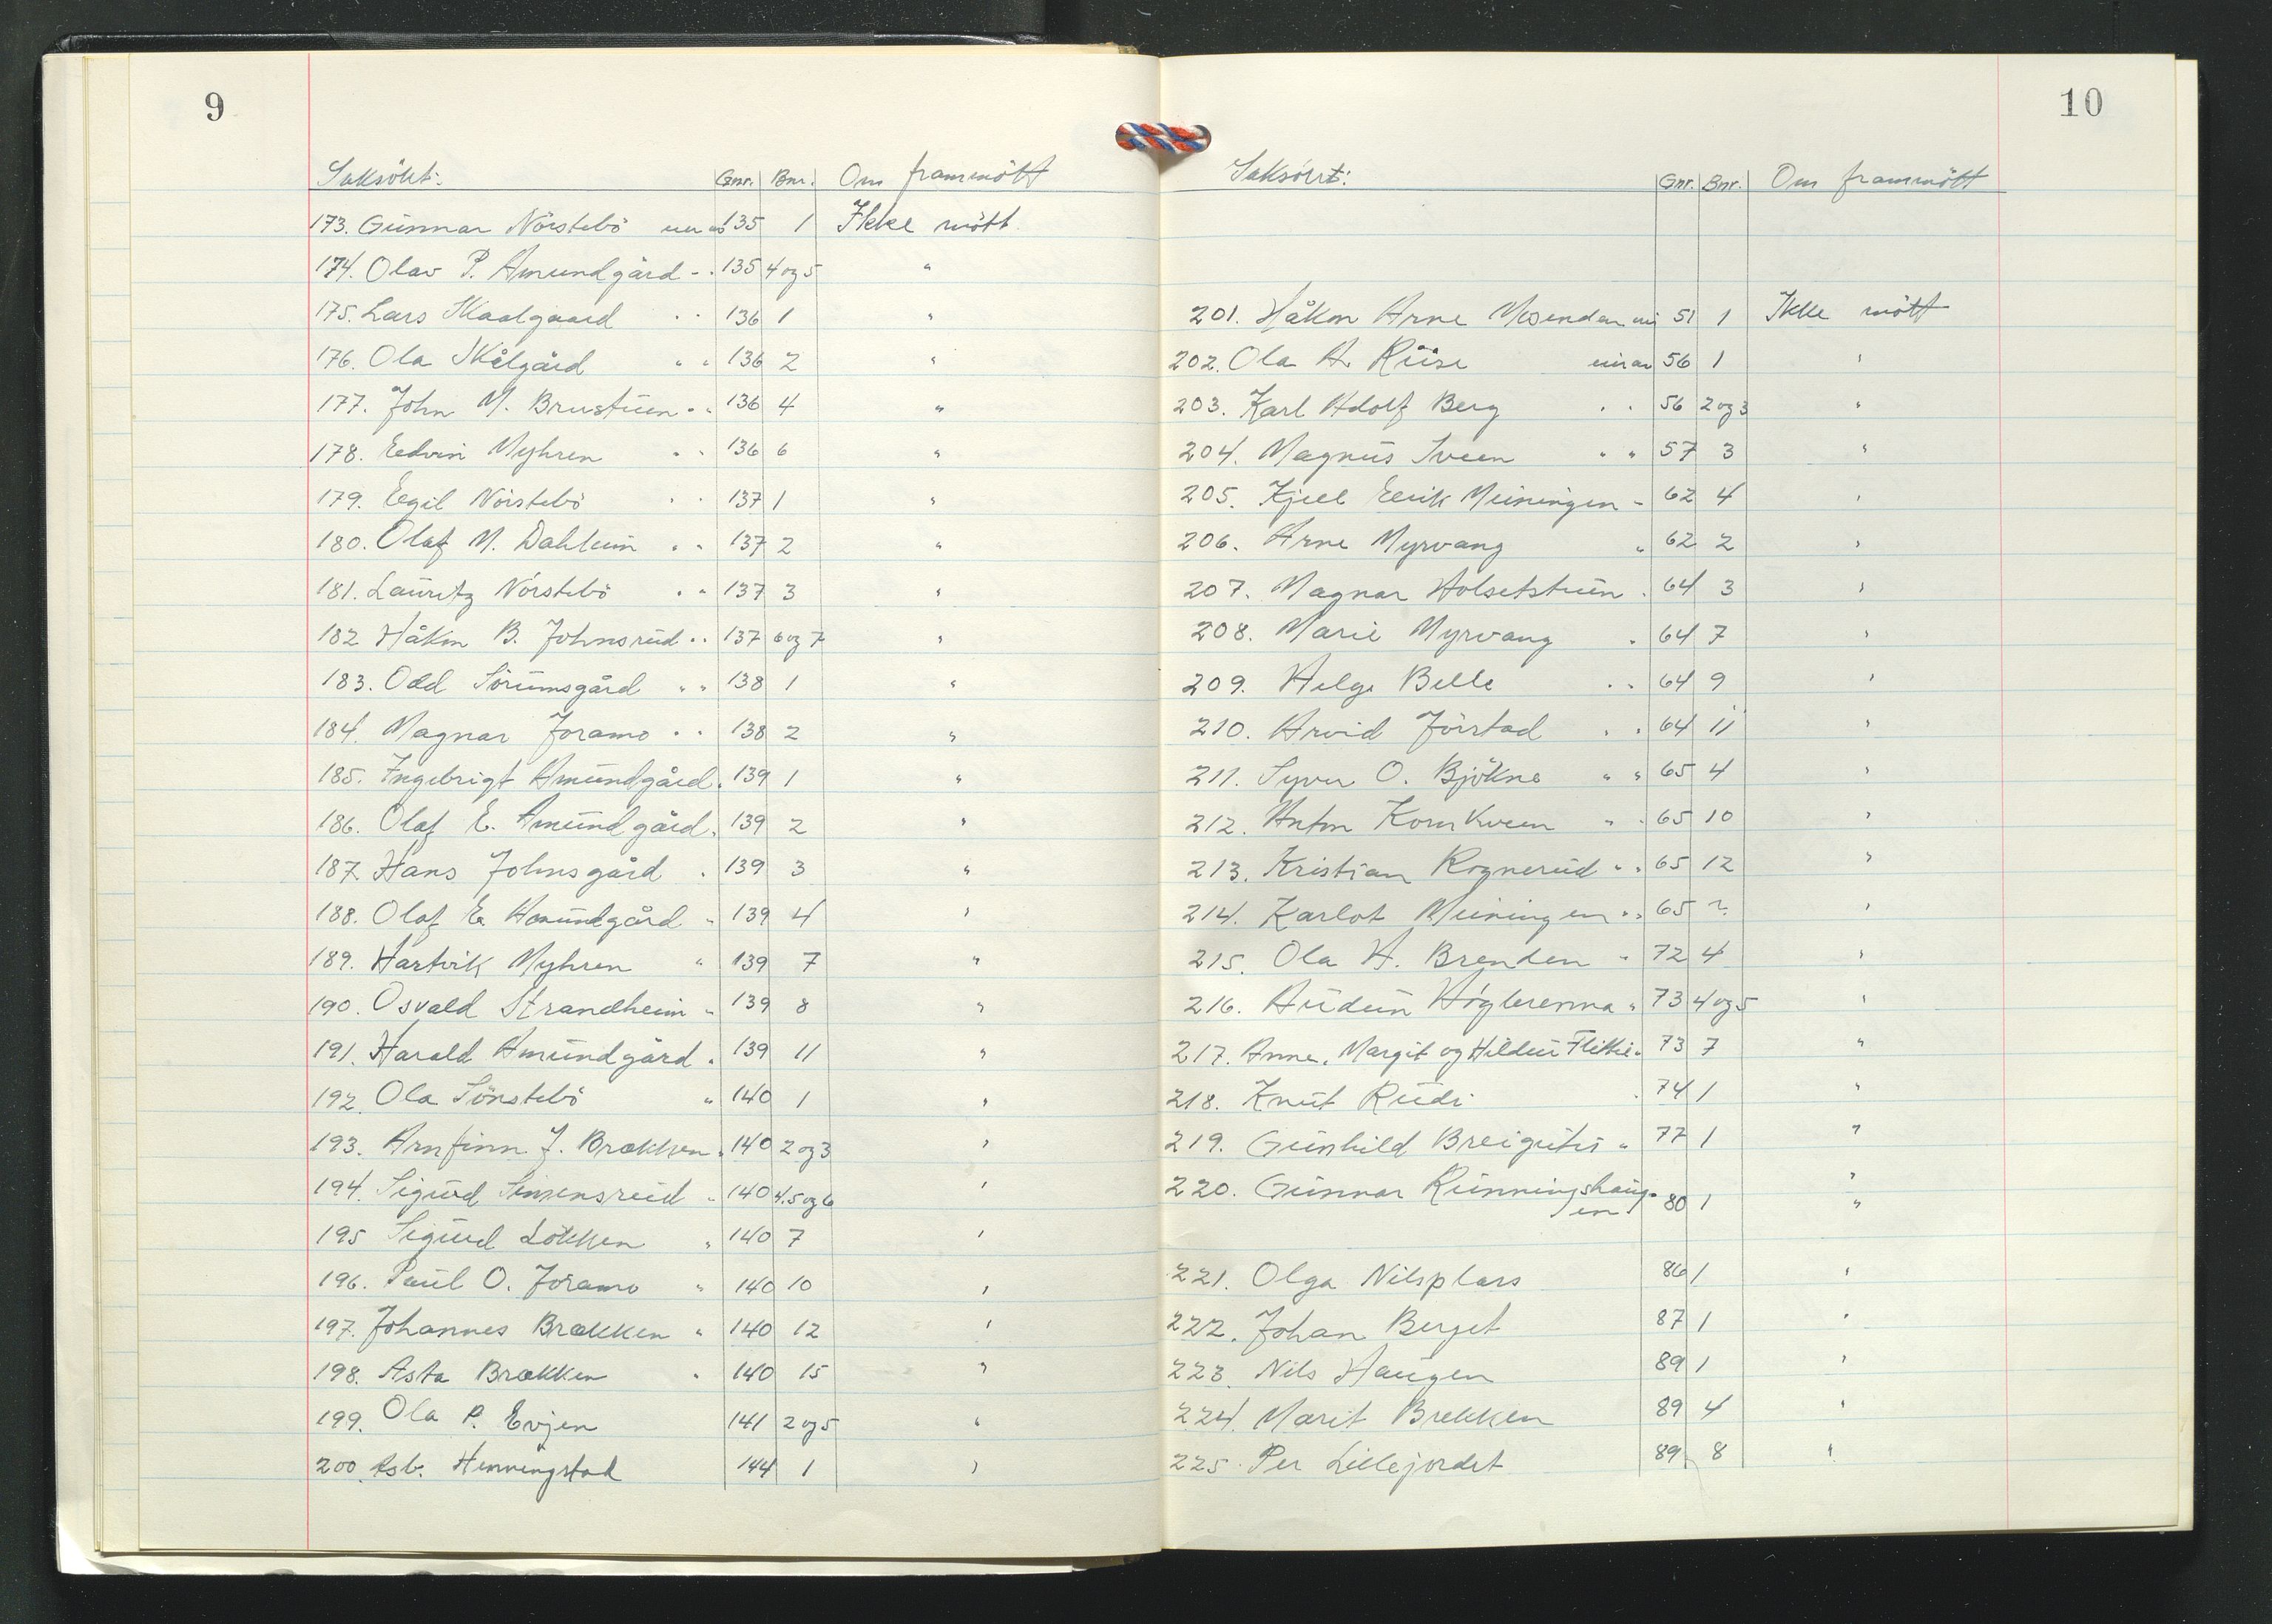 9
Saksökt: Gnr. Bnr. Om frammött
173. Gunnar Nörstebö 135 1 Ikke mött
174. Olav P. Amundgård - . 135 4 og 5 "
175. Lars Skaalgaard . . 136 1 "
176. Ola Skålgård " " 136 2 "
177. John M. Brustuen . . 136 4 "
178. Edvin Myhren " . 136 6 "
179. Egil Nörstebö . . 137 1 "
180. Olaf M. Dahluin . . 137 2 "
181. Lauritz Nörstebö . " 137 3 "
182 Håkon B. Johnsrud . . 137 6 og 7 "
183. Odd Sörumsgård " " 138 1 "
184. Magnar Joramo . . 138 2 "
185. Ingebrigt Amundgård . 139 1 "
186. Olaf E. Amundgård . 139 2 "
187. Hans Johnsgård . 139 3 "
188. Olaf E. Amundgård " 139 4 "
189. Hartvik Myhren " 139 7 "
190. Osvald Strandheim " 139 8 "
191. Harald Amundgård . 139 11 "
192. Ola Sönstebö " 140 1 "
193. Arnfinn J. Brækken . 140 2 og 3 "
194. Sigurd Simensrud . 140 4.5 og 6 "
195 Sigurd Lökken " 140 7 "
196. Paul O. Joramo " 140 10 "
197. Johannes Brækken " 140 12 "
198. Asta Brækken " 140 15 "
199. Ola P. Evjen 141 2 og 5 "
200. Asb. Henningstad 144 1 "
10
Saksökt: Gnr. Bnr. Om frammött
201. Håkon Arne Mosenden 51 1 Ikke mött
202. Ola A. Ruse 56 1 "
203. Karl Adolf Berg . . 56 2 og 3 "
204. Magnus Sveen " " 57 3 "
205. Kjell Eirik Meiningen - 62 4 "
206. Arne Myrvang " 62 2 "
207. Magnar Holsetstuen . 64 3 "
208. Marie Myrvang . 64 7 "
209. Helge Belle . . 64 9 "
210. Arvid Jörstad . . 64 11 "
211. Syver O. Bjökne " " 65 4 "
212. Anton Kornkveen " . 65 10 "
213. Kristian Rognerud . . 65 12 "
214. Karlot Meiningen . . 65 ?. "
215. Ola H. Brenden " 72 4 "
216. Audun Högbrenna . 73 4 og 5 "
217. Anne, Margit og Hildur Flittie . 73 7 "
218. Knut Rudi . 74 1 "
219. Gunhild Breigutu " 77 1 "
220. Gunnar Runningshaug- "
en 80 1 "
221. Olga Nilsplass 86 1 "
222. Johan Berget 87 1 "
223. Nils Haugen 89 1 "
224. Marit Brekken 89 4 "
225. Per Lillejordet 89 8 "